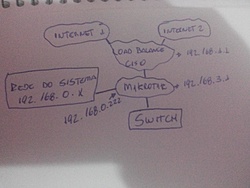 INTERNET 1
INTERNET 2
LOAD BALANCE
CISCO
192.168.2.1
REDE DO SISTEMA
192.168.0.X
MIKROTIK
192.168.3.1
192.168.0.222
SWITCH